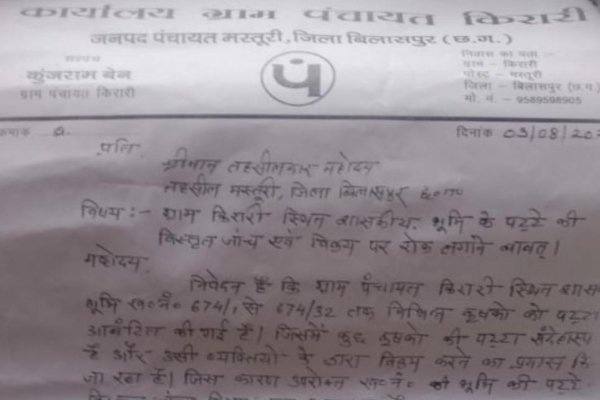 कार्यालय ग्राम पंचायत किरारी
जनपद पंचायत मस्तूरी, जिला बिलासपुर (छ.ग.)
सरपंच
कुंजराम बेन
ग्राम पंचायत किरारी
पं
निवास का पता :-
ग्राम - किरारी
पोस्ट - मस्तूरी
जिला - बिलासपुर (छ.ग.)
मो. नं. - 9589598905
क्रमांक
दिनांक 03/08/20
प्रति,
श्रीमान तहसीलदार महोदय
तहसील मस्तूरी, जिला बिलासपुर छ०ग०
विषय :- ग्राम किरारी स्थित शासकीय भूमि के पट्टे की
विस्तृत जांच एवं विक्रय पर रोक लगाने बावत्।
महोदय,
निवेदन है कि ग्राम पंचायत किरारी स्थित शास
भूमि ख०नं० 674/1 से 674/32 तक विभिन्न कृषको को पट्टा
आबंटित की गई है। जिसमें कुछ कृषको की पट्टा संदेहास्प
है और उसी व्यक्तियो के द्वारा विक्रय करने का प्रयास कि
जा रहा है। जिस कारण उपरोक्त ख०नं० की भूमि की पट्टे